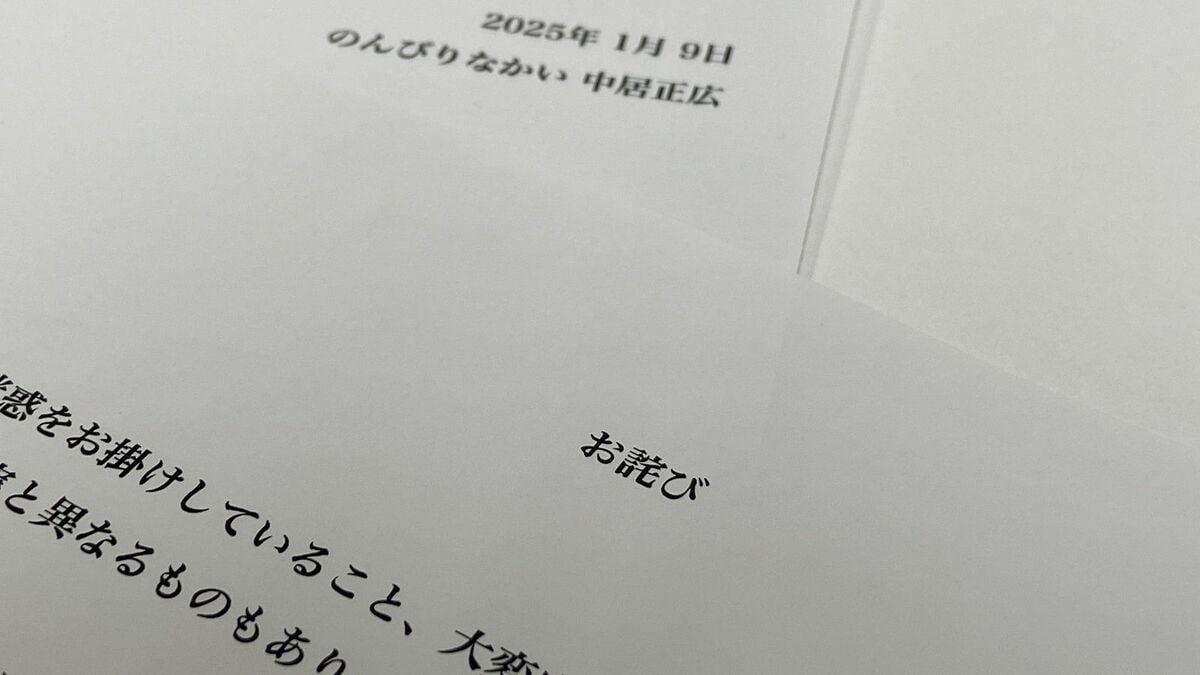 2025年 1月 9日
のんびりなかい 中居正広
お詫び
惑をお掛けしていること、大変
と異なるものもあり